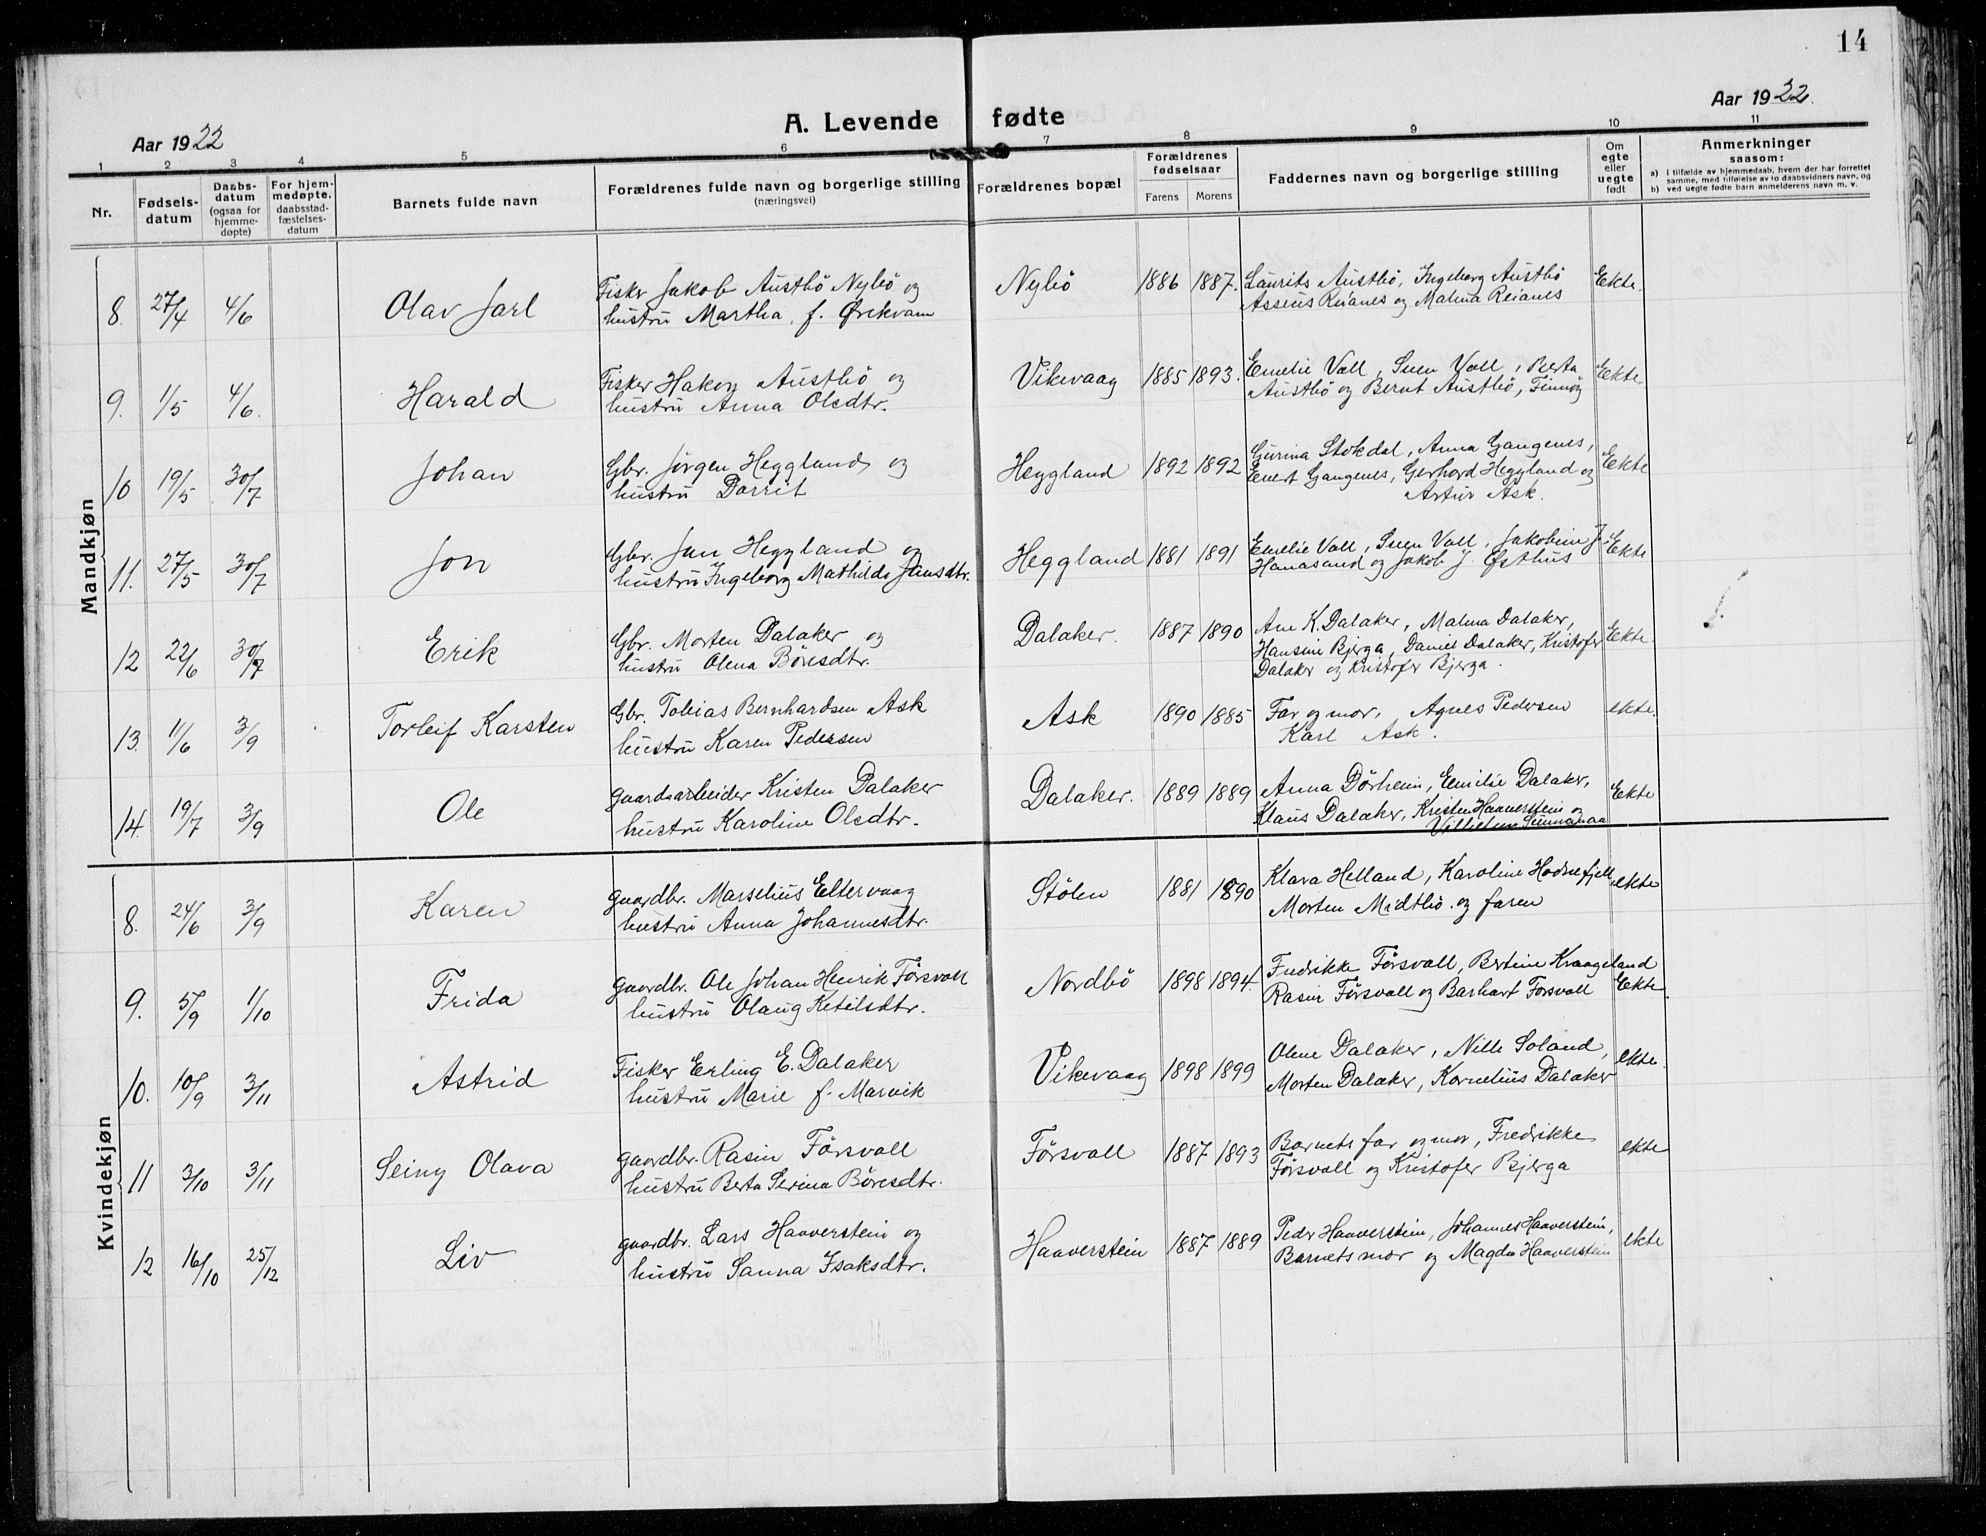 14
A. Levende fødte
Aar 1922
Aar 1922.
1 2 3 4 5 6 7 8 9 10 11
Nr.
Fødsels-
datum
Daabs-
datum
(ogsaa for
hjemme-
døpte)
For hjem-
medøpte.
daabsstad-
fæstelses-
datum
Barnets fulde navn
Forældrenes fulde navn og borgerlige stilling
(næringsvei)
Forældrenes bopæl
Forældrenes
fødselsaar
Farens Morens
Faddernes navn og borgerlige stilling
Om
egte
eller
uegte
født
Anmerkninger
saasom:
a) i tilfælde av hjemmedaab, hvem der har forrettet
samme, med tilføielse av to daabsvidners navn, og
b) ved uegte fødte barn anmelderens navn m. v.
Mandkjøn
8. 27/4 4/6 Olav Jarl
Fisker Jakob Austbö Nybö og
hustru Martha f. Örekvam
Nybö 1886 1887.
Laurits Austbö, Ingeborg Austbö
Asseus Reianes og Malena Reianes
Ekte.
9. 1/5 4/6. Harald
Fisker Hakon Austbö og
hustru Anna Olsdtr.
Vikevaag 1885 1893.
Emelie Vall, Sven Vall, Berta
Austbö og Bernt Austbö, Finnöy
Ekte
10 19/5 30/7 Johan
Gbr. Jörgen Heggland og
hustru Dorrit
Heggland 1892 1892
Gurina Stokdal, Anna Gangenes,
Enert Gangenes, Gerhard Heggland og
Artur Ask.
Ekte
11. 27/5 30/7 Jon
Gbr. Jan Heggland og
hustru Ingeborg Mathilde Jansdtr.
Heggland 1881 1891
Emelie Vall, Sven Vall, Jakobine J.
Hanasand og Jakob J. Østhus
Ekte
12 22/6 30/7 Erik
Gbr. Morten Dalaker og
hustru Olena Böresdtr.
Dalaker. 1887 1890
Ane K. Dalaker, Malena Dalaker,
Hansine Bjerga, Daniel Dalaker, Kristofer
Dalaker og Kristofer Bjerga.
Ekte.
13. 11/6 3/9 Torleif Karsten
Gbr. Tobias Bernhardsen Ask
hustru Karen Pedersen
Ask 1890 1885
Far og mor, Agnes Pedersen
Karl Ask.
ekte.
14 19/7 3/9 Ole
gaardsarbeider Kristen Dalaker
hustru Karoline Olsdtr.
Dalaker. 1889 1889
Anna Dörheim, Emilie Dalaker,
Klaus Dalaker, Kristen Haaverstein og
Vilhelm
Ekte
Kvindekjøn
8. 24/6 3/9 Karen
gaardbr. Marselius Eltervaag
hustru Anna Johannesdtr.
Stölen 1881 1890
Klara Helland, Karoline Hodnefjell
Morten Midtbö og faren
ekte
9. 5/9 1/10 Frida
gaardbr. Ole Johan Henrik Försvoll
hustru Olaug Ketilsdtr.
Nordbö 1898 1894.
Fredrikke Försvoll, Bertine Kraageland
Rasin Försvoll og Barhart Försvoll
Ekte.
10. 10/9 3/11 Astrid
Fisker Erling E. Dalaker
hustru Marie f. Marvik
Vikevaag 1898 1899
Olene Dalaker, Nille Soland,
Morten Dalaker, Kornelius Dalaker
ekte.
11 3/10 3/11 Seiny Olava
gaardbr. Rasin Försvoll
hustru Berta Serina Böresdtr.
Försvoll 1887 1893
Barnets far og mor, Fredrikke
Försvoll og Kristofer Bjerga
ekte
12 16/10 25/12 Liv
gaardbr. Lars Haaverstein og
hustru Sanna Isaksdtr.
Haaverstein 1887 1889
Peder Haaverstein, Johannes Haaverstein,
Barnets mor og Magda Haaverstein
ekte